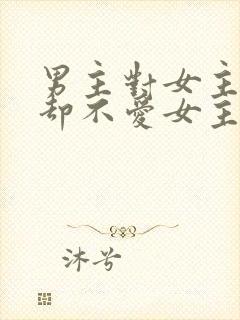 男主對女主
却不愛女主
沐兮